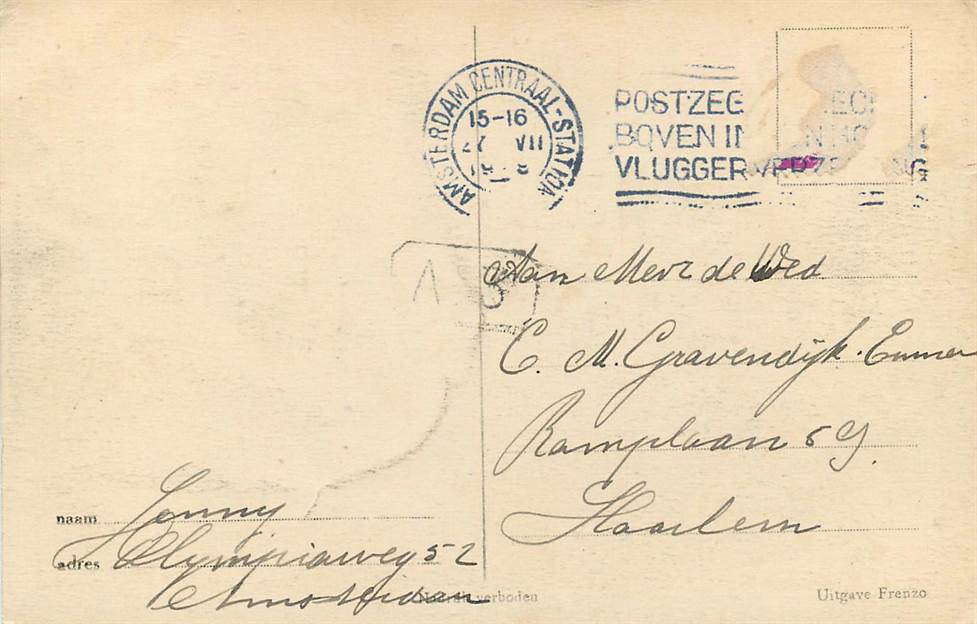 AMSTERDAM CENTRAAL-STATION
15-16
27 VII
POSTZEG
BOVEN IN
VLUGGER VERZE
Aan Mevr de Wed
C. M. Gravendijk. Emmer
Ramplaan 59
Haarlem
naam Jenny
adres Olympiaweg 52
Amsterdam
verboden
Uitgave Frenzo